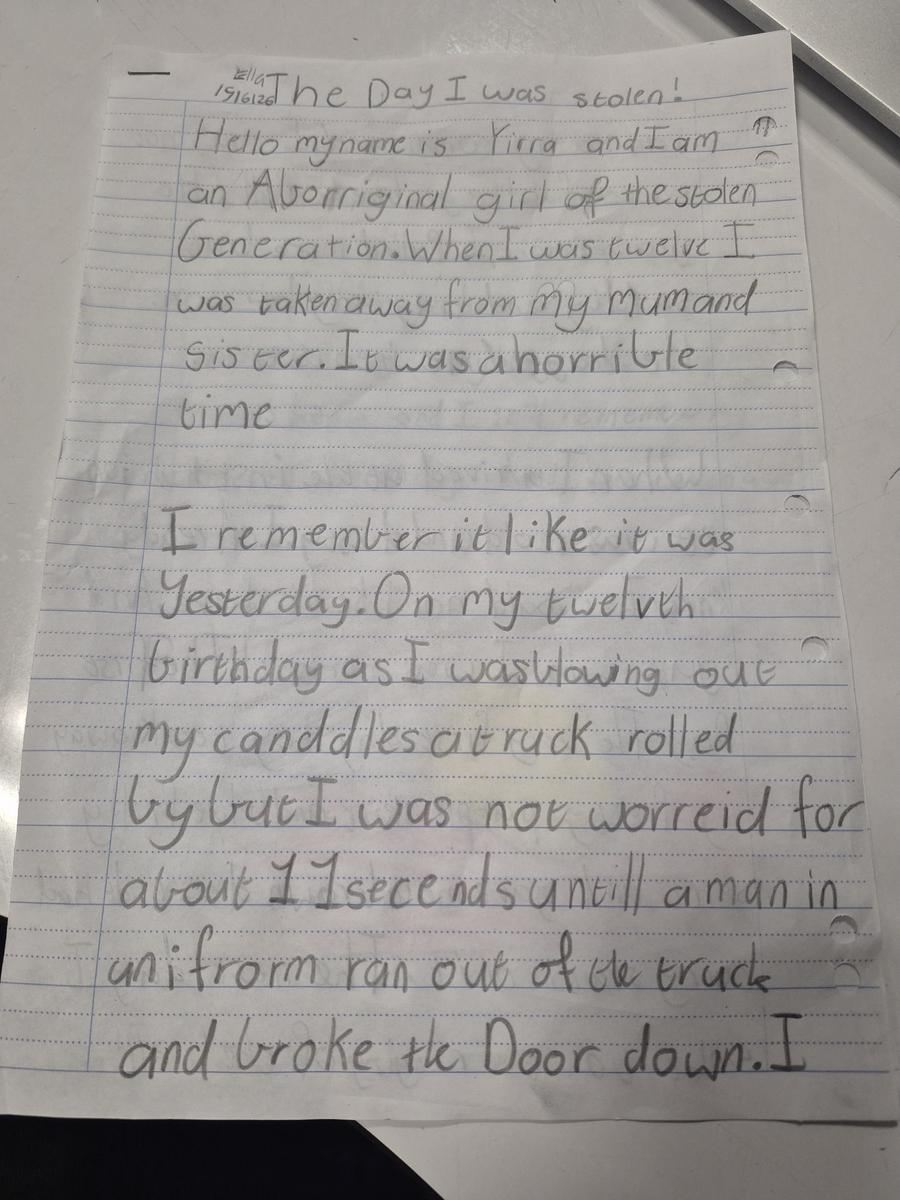 Ella
15/6/26 The Day I was stolen!
Hello my name is Yirra and I am
an Aborriginal girl of the stolen
Generation. When I was twelve I
was taken away from my mum and
sister. It was a horrible
time
I remember it like it was
Yesterday. On my twelvth
birthday as I was blowing out
my canddles a truck rolled
by but I was not worreid for
about 11 secends untill a man in
unifrorm ran out of the truck
and broke the Door down. I